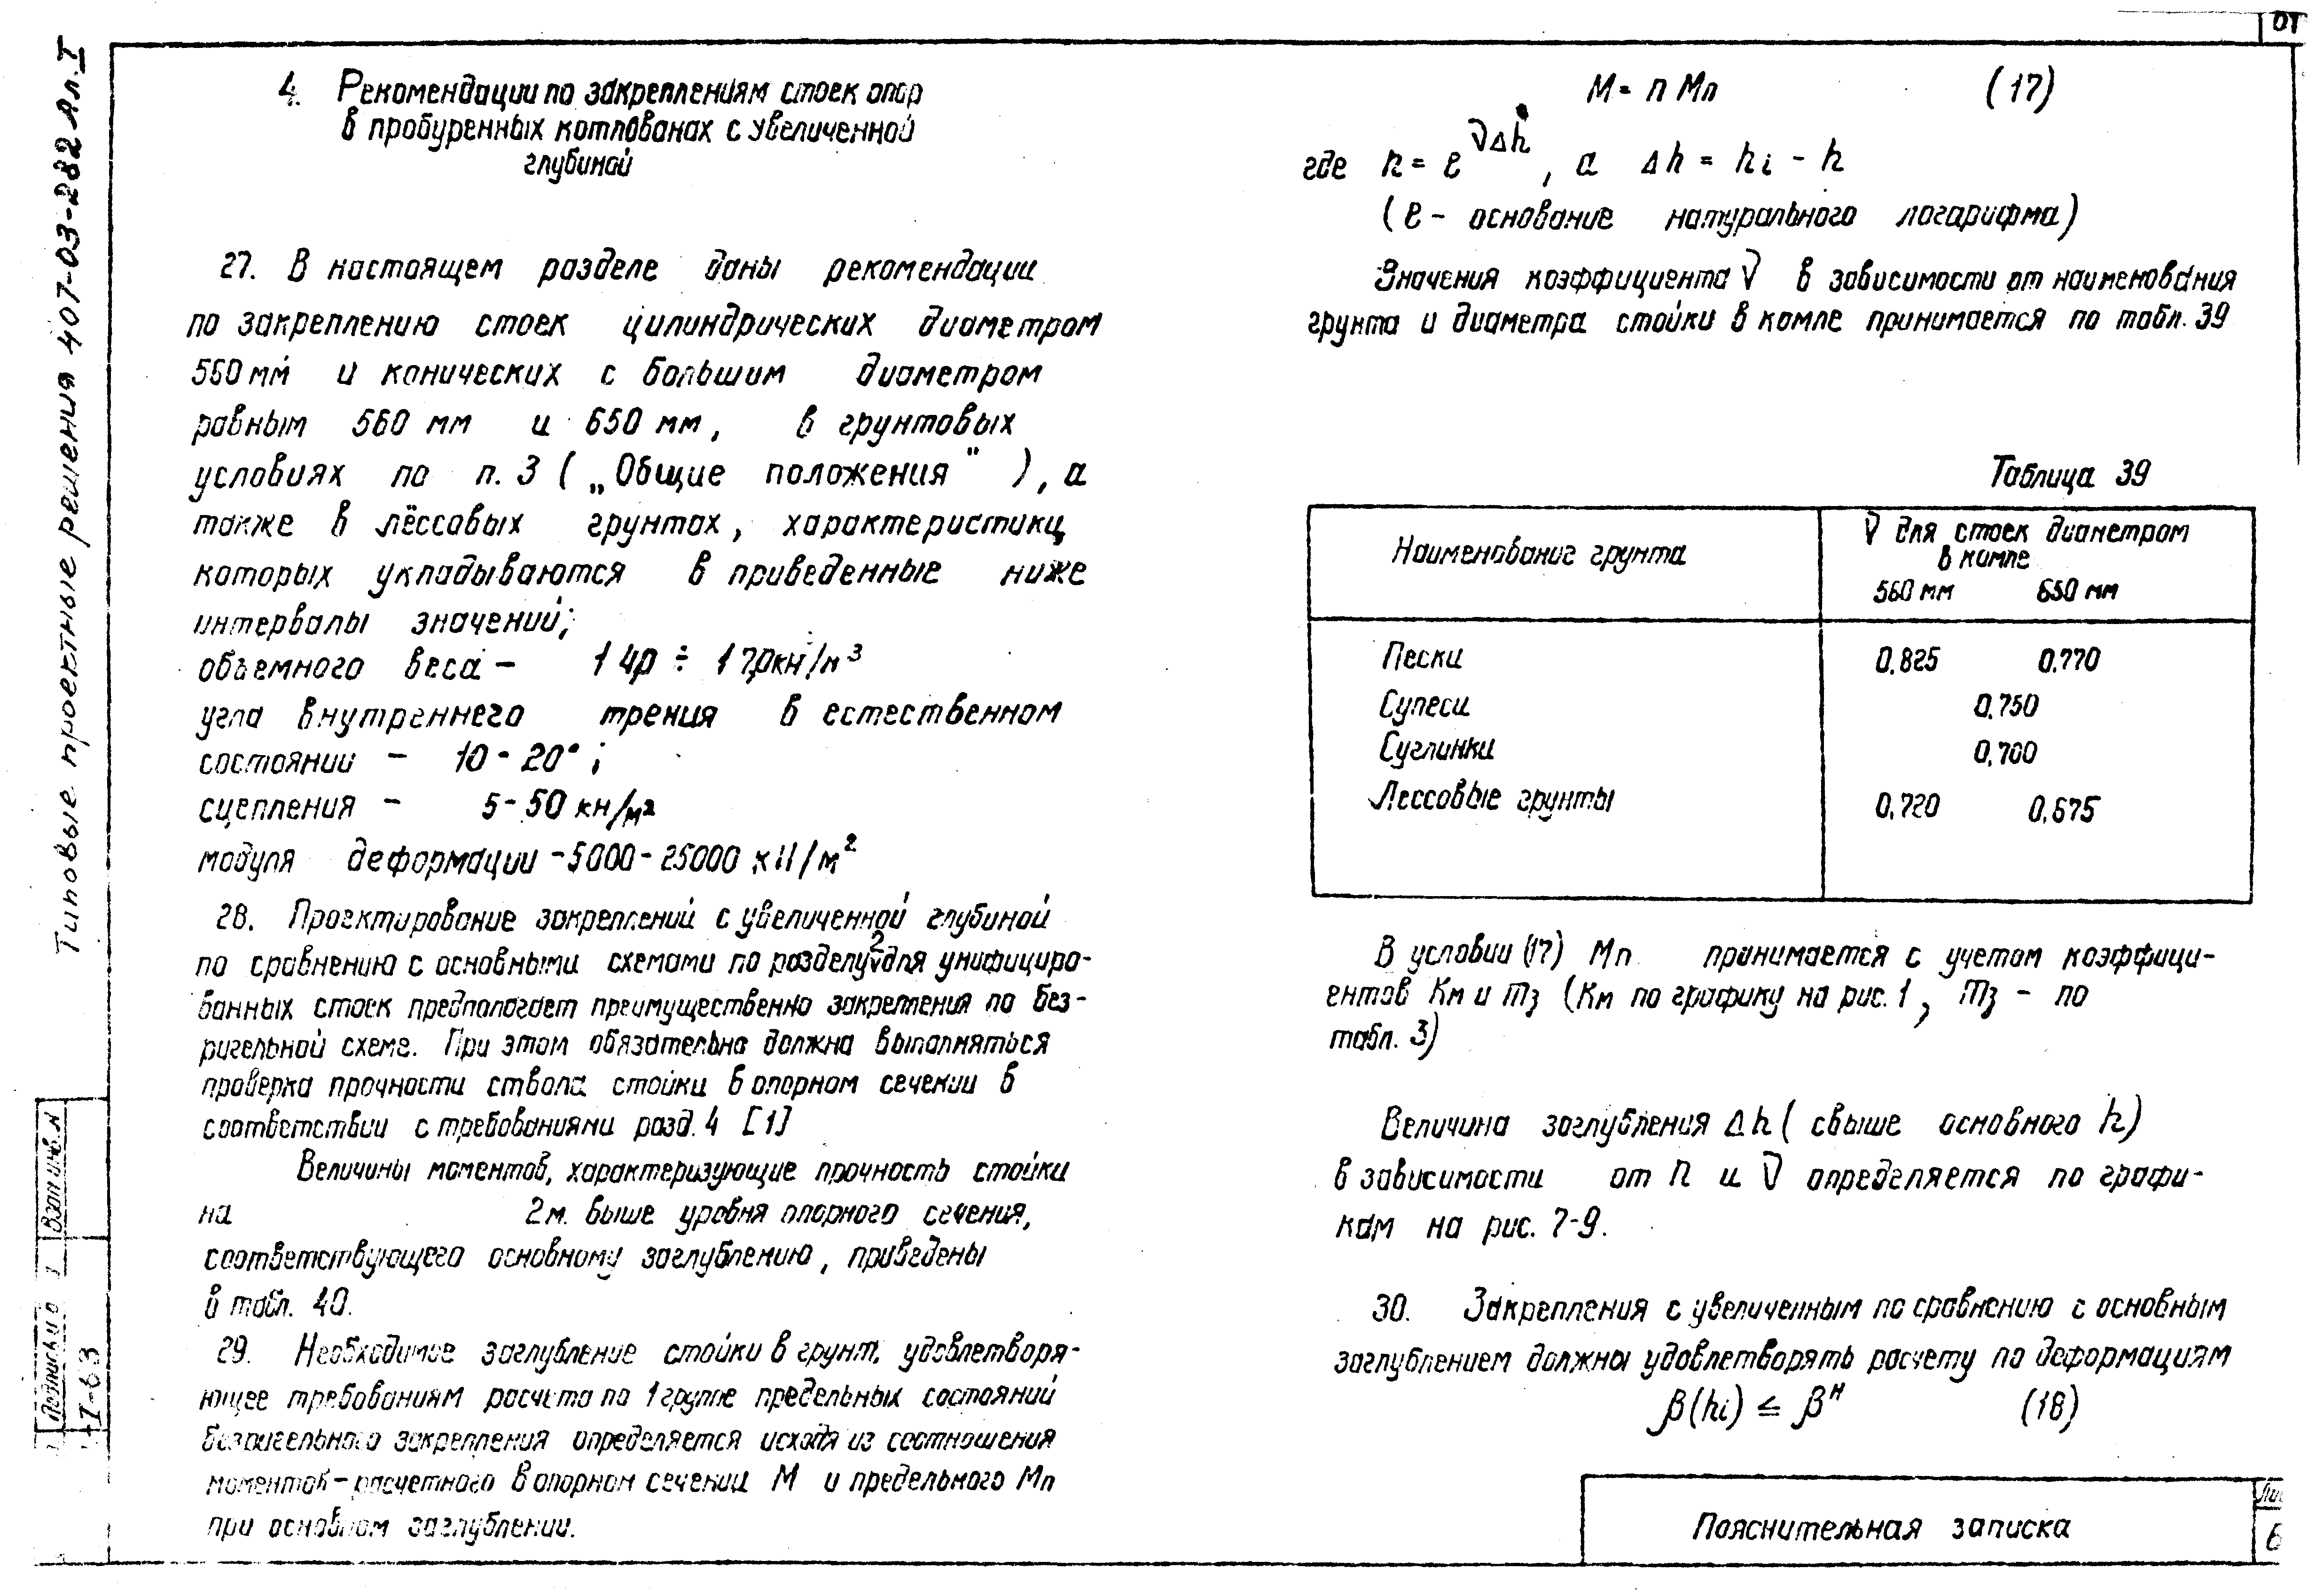 Типовые проектные решения 407-03-282 Ал. I
4. Рекомендации по закреплениям стоек опор
в пробуренных котлованах с увеличенной
глубиной
27. В настоящем разделе даны рекомендации
по закреплению стоек цилиндрических диаметром
560 мм и конических с большим диаметром
равным 560 мм и 650 мм, в грунтовых
условиях по п. 3 („Общие положения"), а
также в лёссовых грунтах, характеристики
которых укладываются в приведенные ниже
интервалы значений;
объемного веса – 14,0 ÷ 17,0 кн/м³
угла внутреннего трения в естественном
состоянии – 10 - 20° ;
сцепления – 5 - 50 кн/м²
модуля деформации – 5000 - 25000 кН/м²
28. Проектирование закреплений с увеличенной глубиной
по сравнению с основными схемами по разделу 2 для унифициро-
ванных стоек предполагает преимущественно закрепления по без-
ригельной схеме. При этом обязательно должна выполняться
проверка прочности ствола стойки в опорном сечении в
соответствии с требованиями разд. 4 [1]
Величины моментов, характеризующие прочность стойки
на 2 м. выше уровня опорного сечения,
соответствующего основному заглублению, приведены
в табл. 40.
29. Необходимое заглубление стойки в грунт, удовлетворя-
ющее требованиям расчета по 1 группе предельных состояний
безригельного закрепления определяется исходя из соотношения
моментов – расчетного в опорном сечении М и предельного Мп
при основном заглублении.
М = n Мп (17)
где n = e^ν̄Δh, а Δh = hi - h
(e - основание натурального логарифма)
Значения коэффициента ν̄ в зависимости от наименования
грунта и диаметра стойки в комле принимается по табл. 39
Таблица 39
Наименование грунта
ν̄ для стоек диаметром
в комле
560 мм 650 мм
Пески 0,825 0,770
Супеси 0,750
Суглинки 0,700
Лессовые грунты 0,720 0,675
В условии (17) Мп принимается с учетом коэффици-
ентов Км и mз (Км по графику на рис. 1, mз – по
табл. 3)
Величина заглубления Δh (свыше основного h)
в зависимости от n и ν̄ определяется по графи-
кам на рис. 7-9.
30. Закрепления с увеличенным по сравнению с основным
заглублением должны удовлетворять расчету по деформациям
β(hi) ≤ βᴴ (18)
Пояснительная записка
Взам инв. N